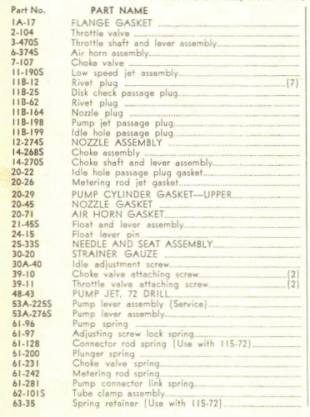 Part No. PART NAME
1A-17 FLANGE GASKET
2-104 Throttle valve
3-470S Throttle shaft and lever assembly
6-374S Air horn assembly
7-107 Choke valve
11-190S Low speed jet assembly
11B-12 Rivet plug (7)
11B-25 Disk check passage plug
11B-62 Rivet plug
11B-164 Nozzle plug
11B-198 Pump jet passage plug
11B-199 Idle hole passage plug
12-274S NOZZLE ASSEMBLY
14-268S Choke assembly
14-270S Choke shaft and lever assembly
20-22 Idle hole passage plug gasket
20-26 Metering rod jet gasket
20-29 PUMP CYLINDER GASKET—UPPER
20-45 NOZZLE GASKET
20-71 AIR HORN GASKET
21-45S Float and lever assembly
24-15 Float lever pin
25-33S NEEDLE AND SEAT ASSEMBLY
30-20 STRAINER GAUZE
30A-40 Idle adjustment screw
39-10 Choke valve attaching screw (2)
39-11 Throttle valve attaching screw (2)
48-43 PUMP JET, 72 DRILL
53A-225S Pump lever assembly (Service)
53A-276S Pump lever assembly
61-96 Pump spring
61-97 Adjusting screw lock spring
61-128 Connector rod spring (Use with 115-72)
61-200 Plunger spring
61-231 Choke valve spring
61-242 Metering rod spring
61-281 Pump connector link spring
62-101S Tube clamp assembly
63-35 Spring retainer (Use with 115-72)